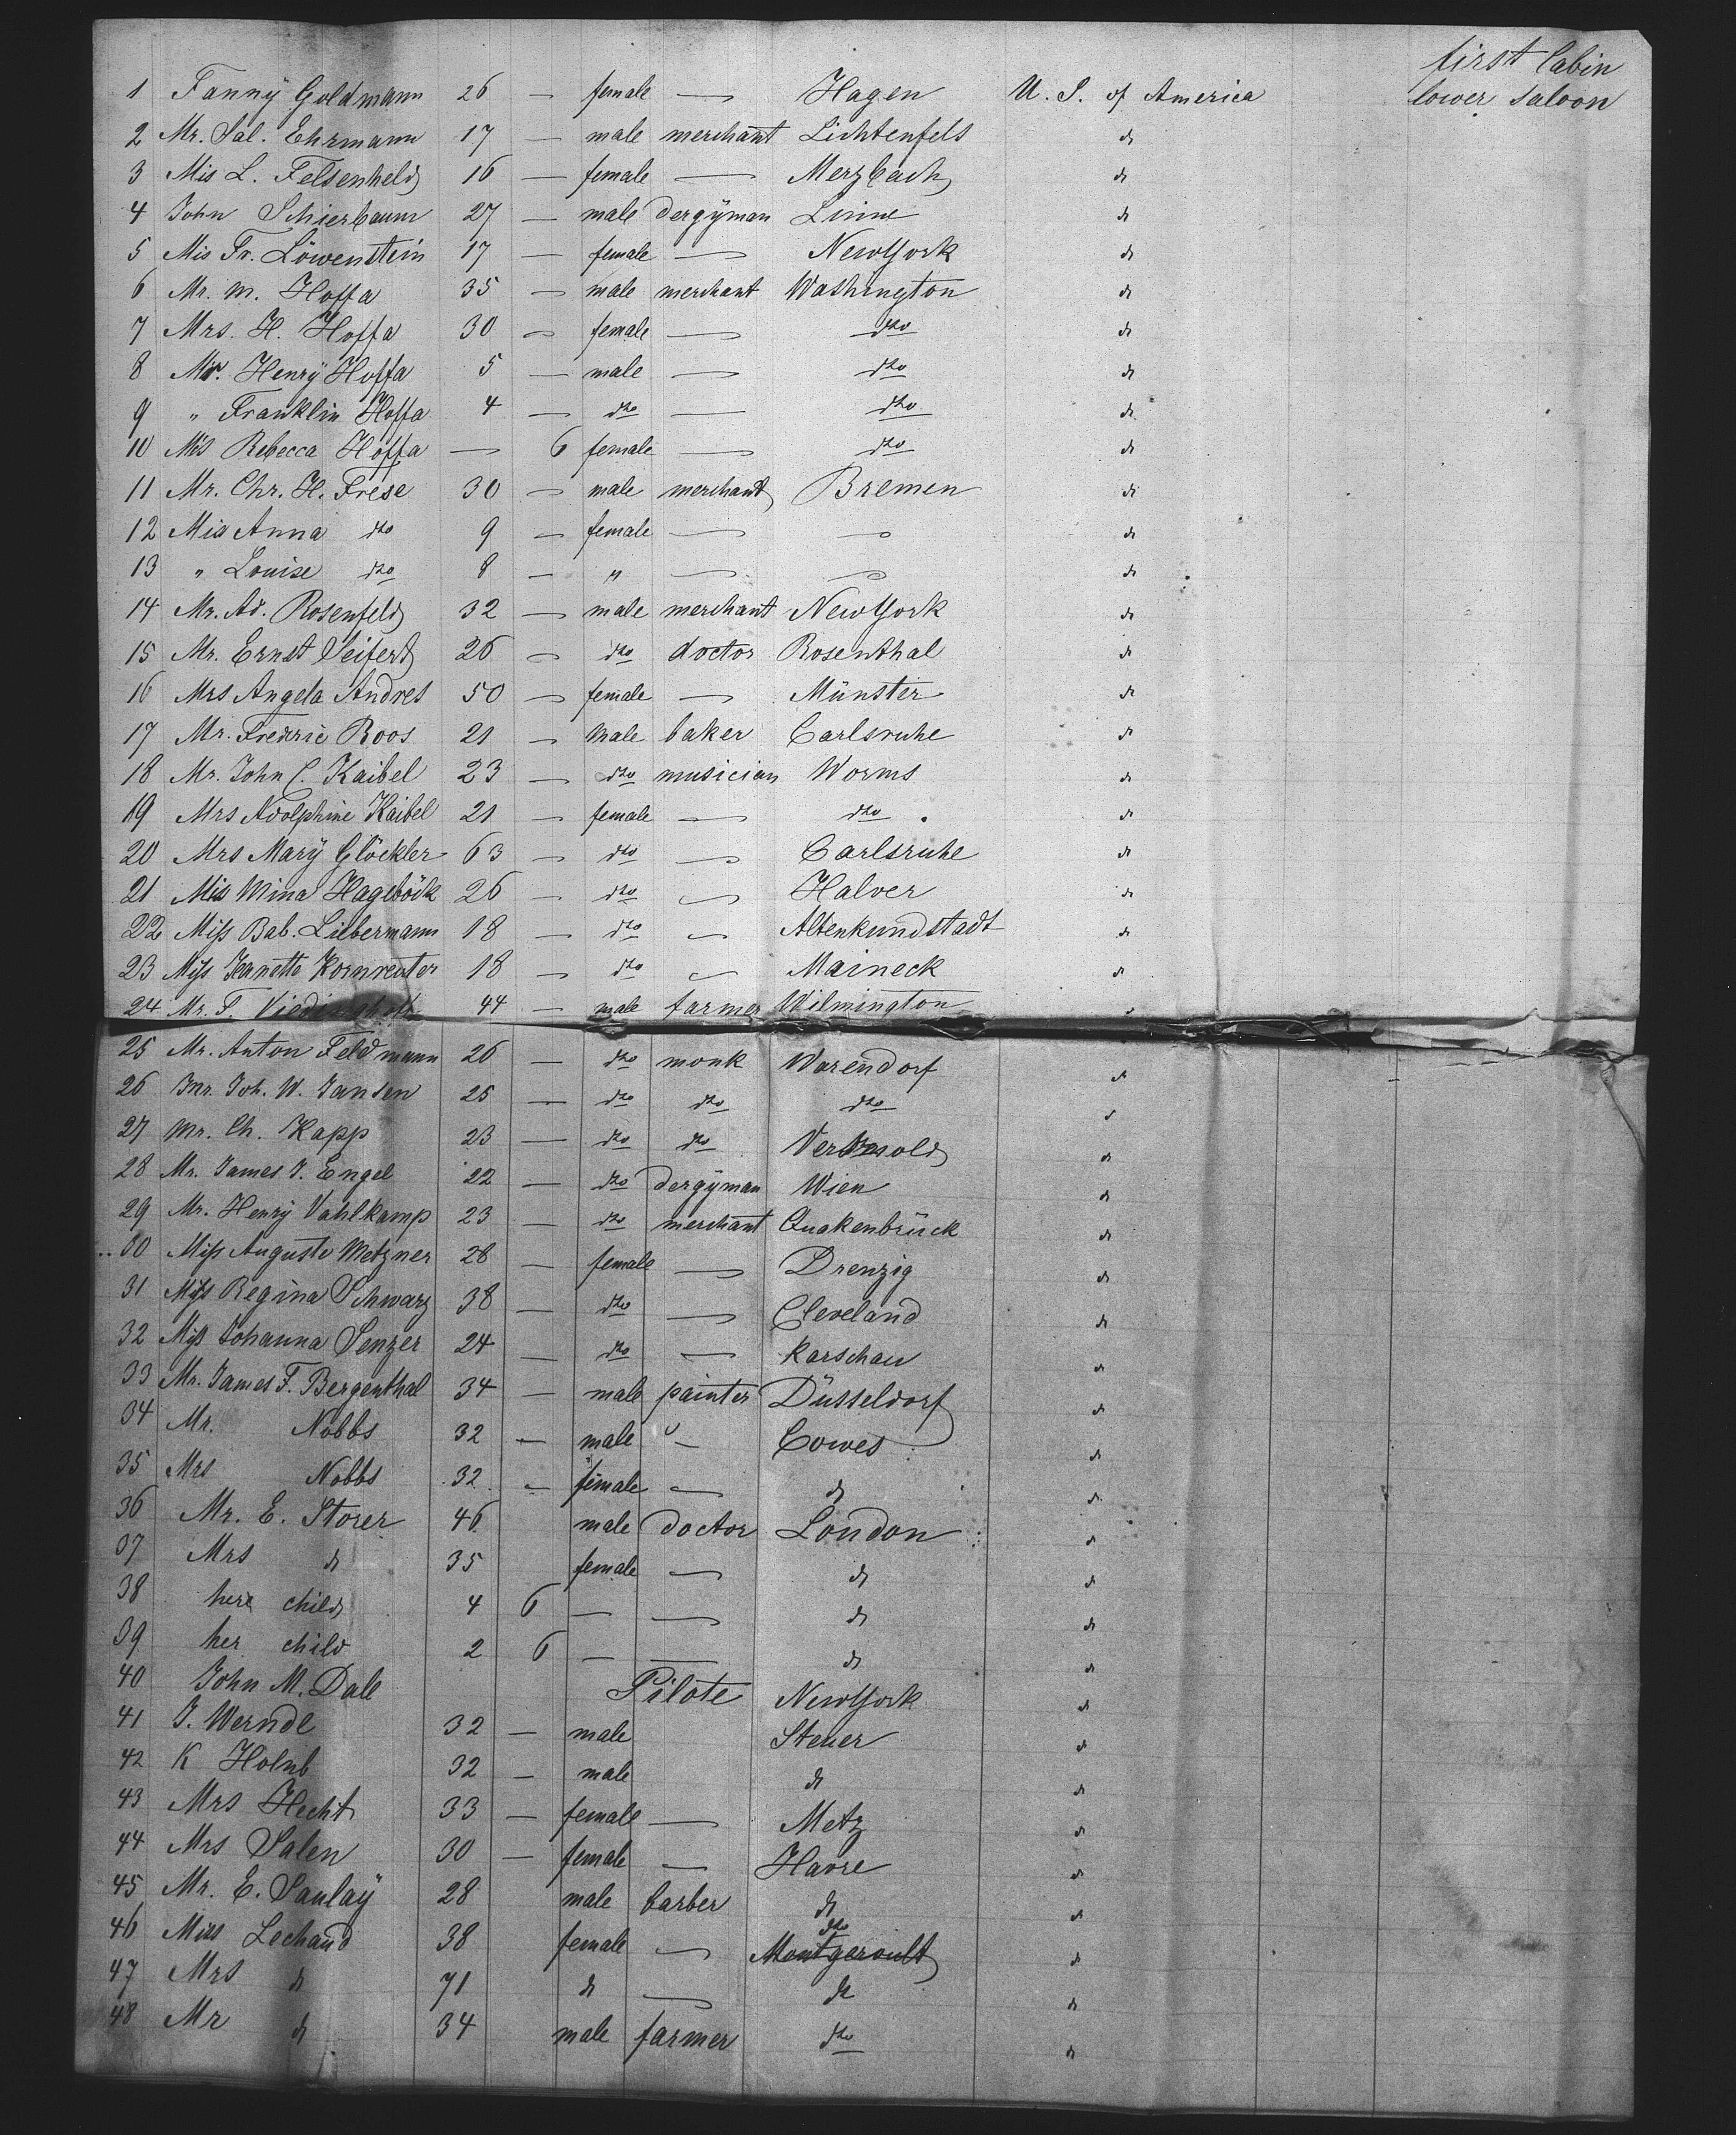 first Cabin
1 Fanny Goldmann 26 — female — Hagen U. S. of America lower saloon
2 Mr. Sal. Ehrmann 17 — male merchant Lichtenfels do
3 Mis L. Felsenheld 16 — female — Merzbach do
4 John Schierbaum 27 — male clergÿman Linne do
5 Mis Fr. Löwenstein 17 — female — NewYork do
6 Mr. M. Hoffa 35 — male merchant Washington do
7 Mrs. H. Hoffa 30 — female — dto do
8 Mr. Henrÿ Hoffa 5 — male — dto do
9 " Franklin Hoffa 4 — dto — dto do
10 Mis Rebecca Hoffa — 6 female — dto do
11 Mr. Chr. H. Frese 30 — male merchant Bremen do
12 Mis Anna dto 9 — female — — do
13 " Louise dto 8 — " — — do
14 Mr. Ad. Rosenfeld 32 — male merchant NewYork do
15 Mr. Ernst Seifert 26 — dto doctor Rosenthal do
16 Mrs Angela Andres 50 — female — Münster do
17 Mr. Frederic Roos 21 — male baker Carlsruhe do
18 Mr. John C. Kaibel 23 — dto musician Worms do
19 Mrs Adolphine Kaibel 21 — female — dto do
20 Mrs Marÿ Glöckler 63 — dto — Carlsruhe do
21 Mis Mina Hageböck 26 — dto — Halver do
22 Miss Bab. Liebermann 18 — dto — Altenkundstadt do
23 Miss Jeanette Kornreuter 18 — dto — Maineck do
24 Mr. F. 44 — male farmer Wilmington do
25 Mr. Anton Feldmann 26 — dto monk Warendorf do
26 Mr. Joh. W. Jansen 25 — dto dto dto do
27 Mr. Ch. Kapp 23 — dto dto do
28 Mr. James J. Engel 22 — dto clergÿman Wien do
29 Mr. Henry Vahlkamp 23 — dto merchant Quakenbrück do
30 Miss Auguste Metzner 28 — female — Drenzig do
31 Miss Regina Schwarz 38 — dto — Cleveland do
32 Miss Johanna Senzer 24 — dto — Karschau do
33 Mr. James F. Bergenthal 34 — male painter Düsseldorf do
34 Mr. Nobbs 32 — male — Cowes do
35 Mrs Nobbs 32 — female — do do
36 Mr. E. Storer 46 male doctor London do
37 Mrs do 35 female — do do
38 her child 4 6 — — do do
39 her child 2 6 — — do do
40 John M. Dale Pilote NewYork do
41 J. Werndl 32 — male Steuer do
42 K Holub 32 — male do do
43 Mrs Hecht 33 — female — Metz do
44 Mrs Salen 30 — female — Havre do
45 Mr. E. Saulaÿ 28 male barber do do
46 Miss Lechaud 38 female — Montgeroult dto do
47 Mrs do 71 do — do do
48 Mr do 34 male farmer dto do